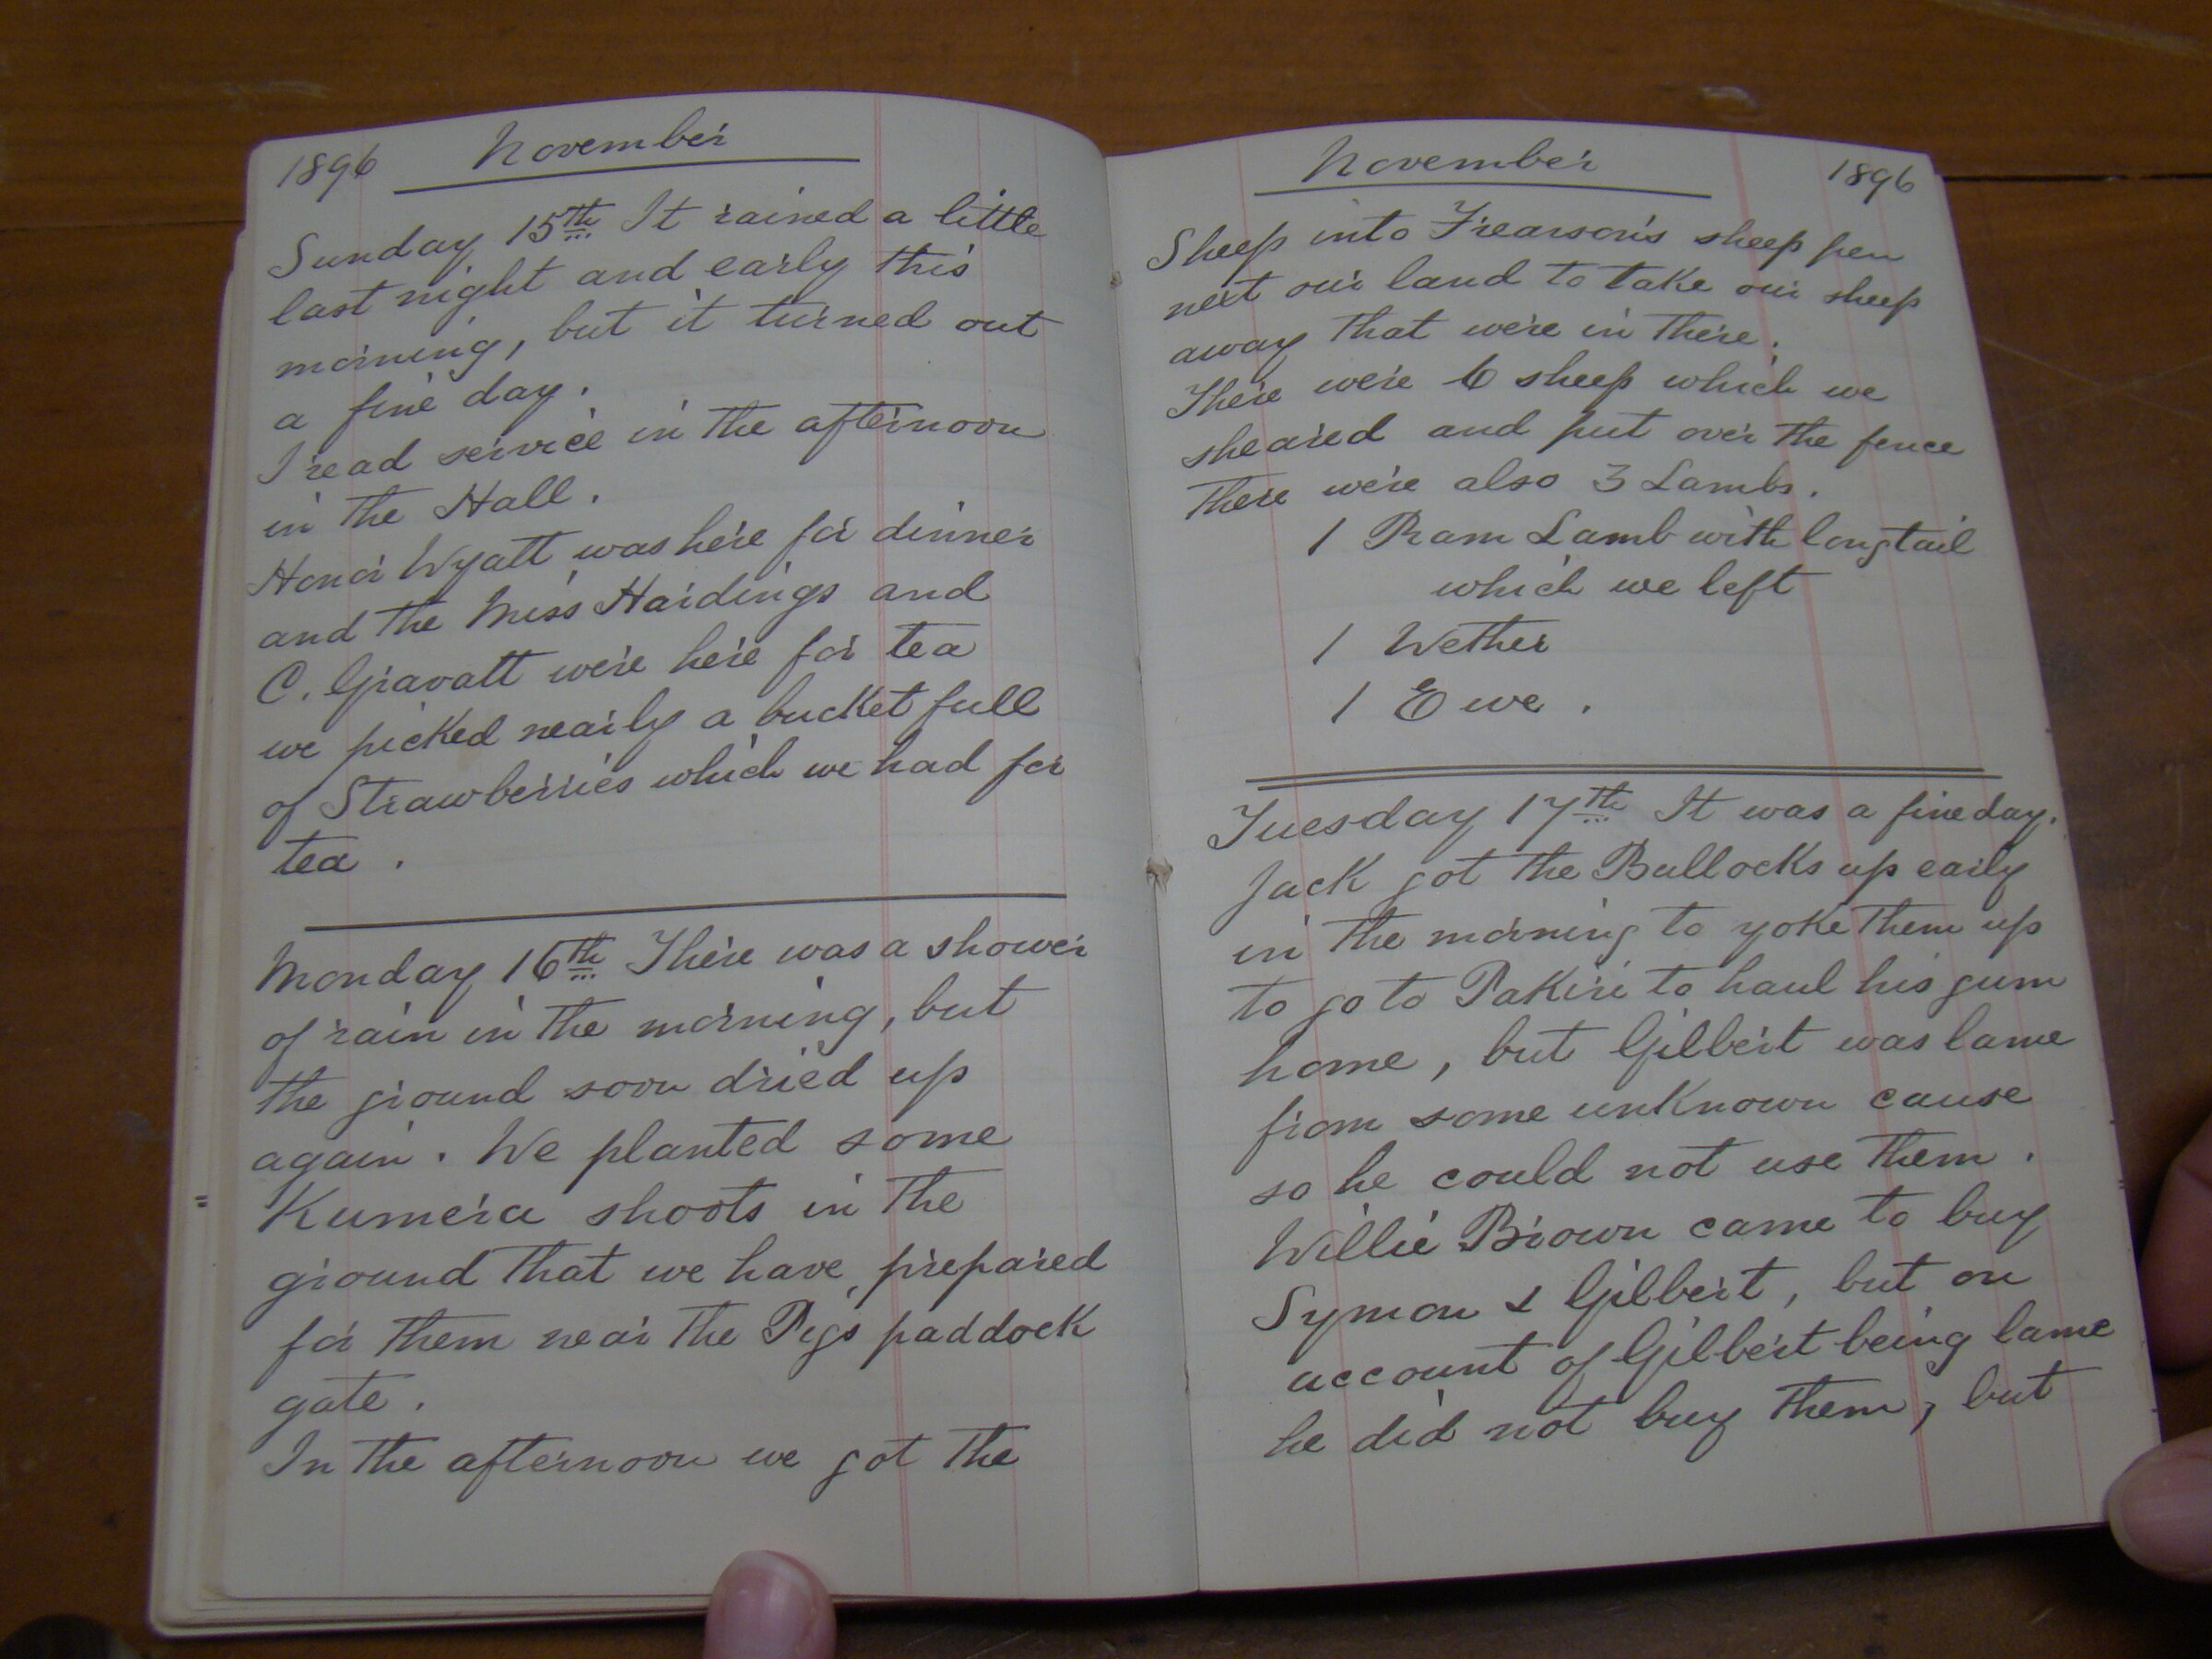 1896 November
Sunday 15th It rained a little
last night and early this
morning, but it turned out
a fine day.
I read service in the afternoon
in the Hall.
Honor Wyatt was here for dinner
and the Miss Hardings and
C. Gravatt were here for tea
we picked nearly a bucket full
of Strawberries which we had for
tea.
Monday 16th There was a shower
of rain in the morning, but
the ground soon dried up
again. We planted some
Kumera shoots in the
ground that we have prepared
for them near the Pigs paddock
gate.
In the afternoon we got the
November 1896
Sheep into Frearson's sheep pen
next our land to take our sheep
away that were in there.
There were 6 sheep which we
sheared and put over the fence
There were also 3 Lambs.
1 Ram Lamb with long tail
which we left
1 Wether
1 Ewe.
Tuesday 17th It was a fine day.
Jack got the Bullocks up early
in the morning to yoke them up
to go to Pakiri to haul his gum
home, but Gilbert was lame
from some unknown cause
so he could not use them.
Willie Brown came to buy
Symon & Gilbert, but on
account of Gilbert being lame
he did not buy them, but